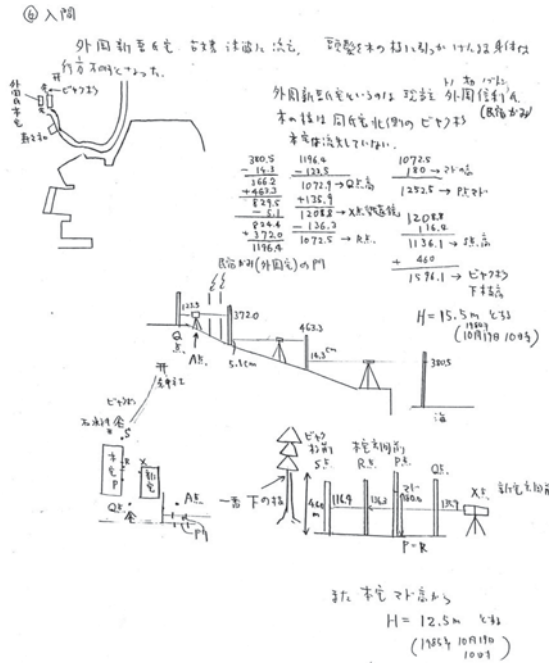 ⑥ 入間
外岡新吾氏宅 古文書 津波に流亡、頭髪を木の枝に引っかけたまま身体は
行方不明となった。
开
ビャクシン
外岡氏本宅
外岡新吾氏宅というのは現当主 外岡信利氏
(民宿かみ)
木の枝は同氏宅北側のビャクシン
本宅は流失していない。
380.5
− 14.3
366.2
+463.3
829.5
− 5.1
824.4
+ 372.0
1196.4
1196.4
− 123.5
1072.9 → Q点高
+135.9
1208.8 → X点望遠鏡
− 136.3
1072.5 → R点
1072.5
180 → マドの高
1252.5 → P点マド
1208.8
116.4
1136.1 → S点高
+ 460
1596.1 → ビャクシン
下枝高
H = 15.5m とする
(1985年
10月19日 10時)
民宿かみ(外岡宅)の門
123.5
372.0
463.3
14.3cm
380.5
5.1cm
Q点
A点
海
开
ビャクシン
S
本宅
R
P
X
新宅
Q点
A点
門
一番下の枝
ビャクシン
S点
本宅玄関前
R点
P点
Q点
X点 新宅玄関前
460
m
116.4
136.3
マド
180.0
135.9
P=R
また 本宅マド高から
H = 12.5m とする
(1985年 10月19日
10時)